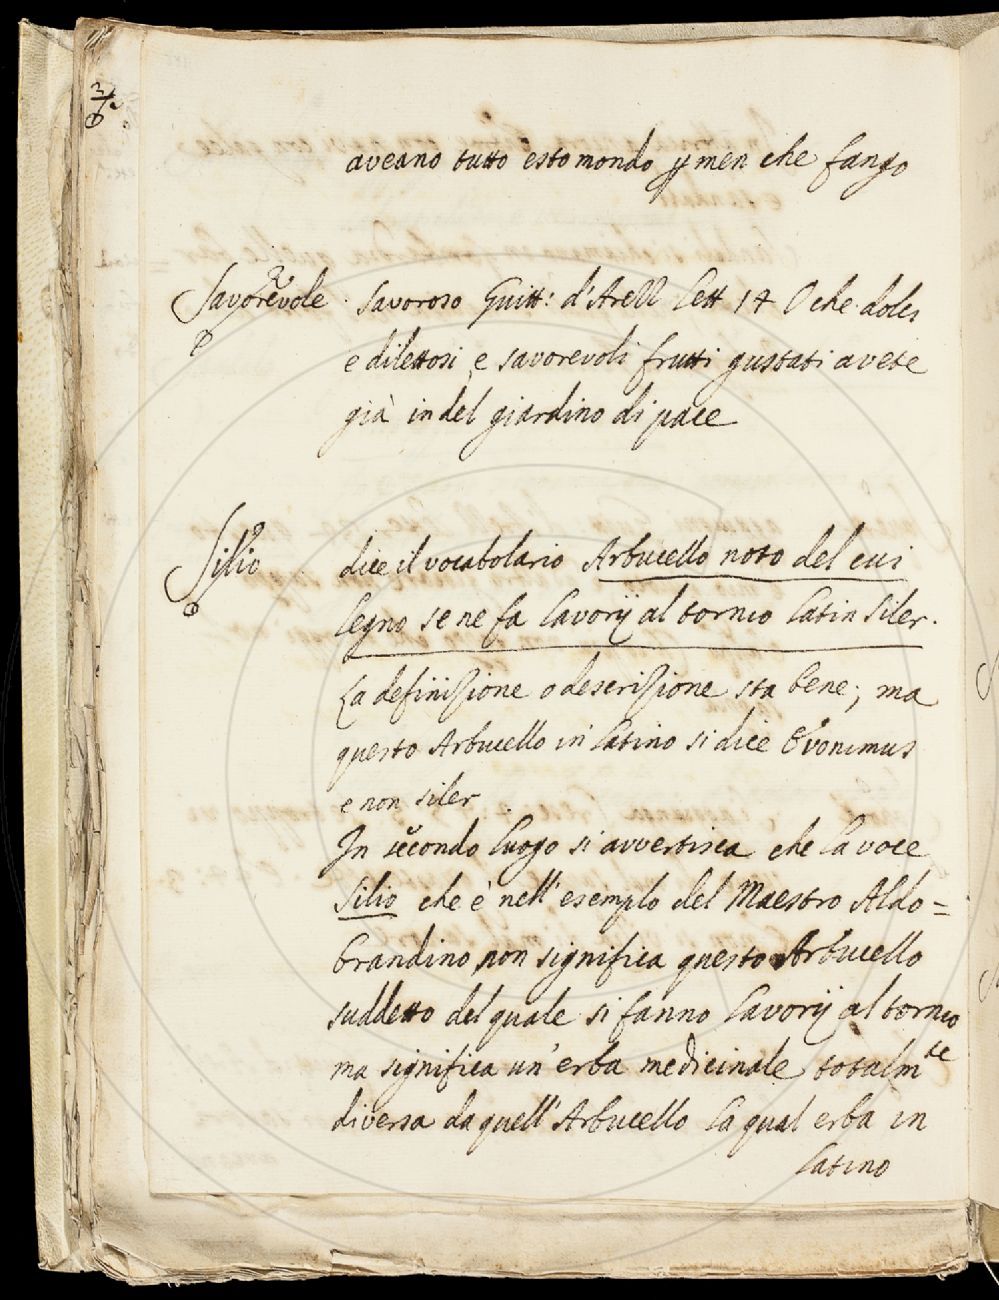 aveano tutto esto mondo p men che fango
Savorevole. Savoroso Guitt: d'Arezz Lett 14 O che dolci
e dilettosi e savorevoli frutti gustati avete
già indel giardino di pace
Silio dice il vocabolario Arbucello noto del cui
legno se ne fa lavorij al tornio Latin Siler.
La definizione o descrizione sta bene; ma
questo Arbucello in latino si dice Evonimus
e non siler
In secondo luogo si avvertisca che la voce
Silio che è nell'esemplo del Maestro Aldo=
brandino non significa questo Arbucello
suddetto del quale si fanno lavorij al tornio
ma significa un'erba medicinale totalmte
diversa da quell'Arbucello la qual erba in
latino